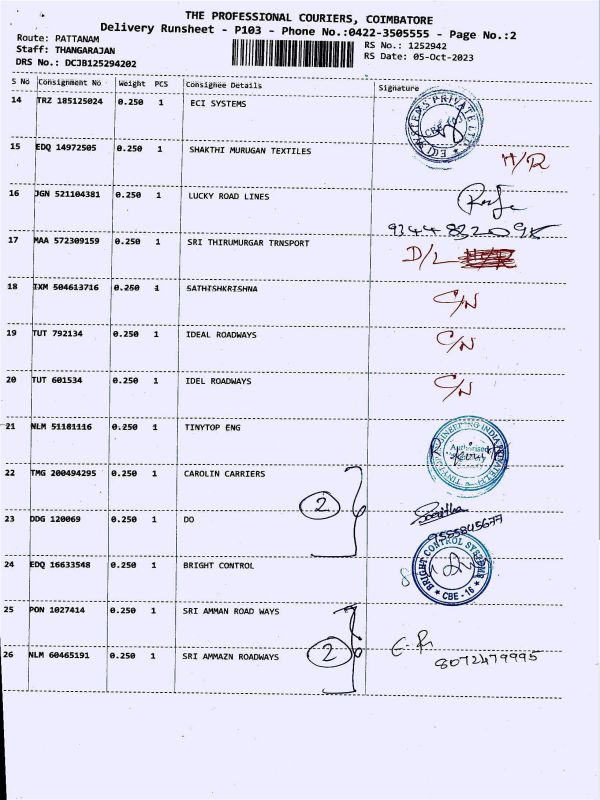 THE PROFESSIONAL COURIERS, COIMBATORE
Delivery Runsheet - P103 - Phone No.:0422-3505555 - Page No.:2
Route: PATTANAM
Staff: THANGARAJAN
DRS No.: DCJB125294202
RS No.: 1252942
RS Date: 05-Oct-2023
S No Consignment No Weight PCS Consignee Details Signature
14 TRZ 185125024 0.250 1 ECI SYSTEMS
15 EDQ 14972505 0.250 1 SHAKTHI MURUGAN TEXTILES H/R
16 JGN 521104381 0.250 1 LUCKY ROAD LINES
17 MAA 572309159 0.250 1 SRI THIRUMURGAR TRNSPORT D/L
18 IXM 504613716 0.250 1 SATHISHKRISHNA C/N
19 TUT 792134 0.250 1 IDEAL ROADWAYS C/N
20 TUT 601534 0.250 1 IDEL ROADWAYS C/N
21 NLM 51181116 0.250 1 TINYTOP ENG
22 TMG 200494295 0.250 1 CAROLIN CARRIERS
2
23 DDG 120069 0.250 1 DO
9585845677
24 EDQ 16633548 0.250 1 BRIGHT CONTROL
BRIGHT CONTROL SYSTEMS
CBE - 16
25 PON 1027414 0.250 1 SRI AMMAN ROAD WAYS
2
26 NLM 60465191 0.250 1 SRI AMMAZN ROADWAYS
8072479995